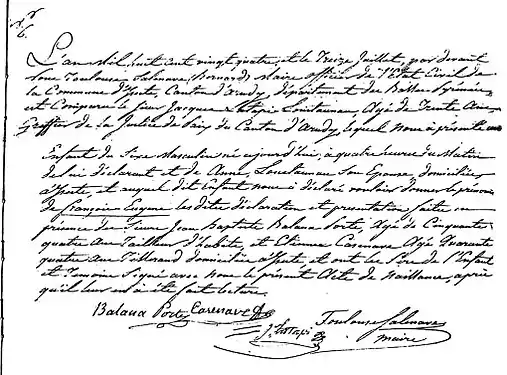 L'an Mil, huit cent vingt quatre, et le Treize Juillet, par devant
Nous Toulouse Salenave, Bernard, Maire officier de l'Etat Civil de
la Commune d'Izeste, Canton d'Arudy, département des Basses Pyrénées
est Comparu le sieur Jacques Lostapi Loustaunau, Agé de Trente Ans
Greffier de la Justice de Paix du Canton d'Arudy, lequel nous a présenté un
Enfant du Sexe Masculin né aujourd'hui, à quatre heures du Matin
de lui déclarant et de Anne, Loustaunau son Epouse, domiciliés
d'Izeste, et auquel dit Enfant nous a déclaré vouloir donner le prénom
de François Eugene les dites déclaration et presentation faites en
présence des Sieurs Jean Baptiste Balana Porte, Agé de Cinquante
quatre Ans Tailleur d'habits, et Etienne Casenave Agé Quarante
quatre Ans Tisserand domiciliés d'Izeste, et ont les Père de l'Enfant
et Temoins Signé avec nous le présent Acte de Naissance, après
qu'il leur en a été fait lecture.
Balana Porte Casenave
J. Lostapi Toulouse Salenave
maire